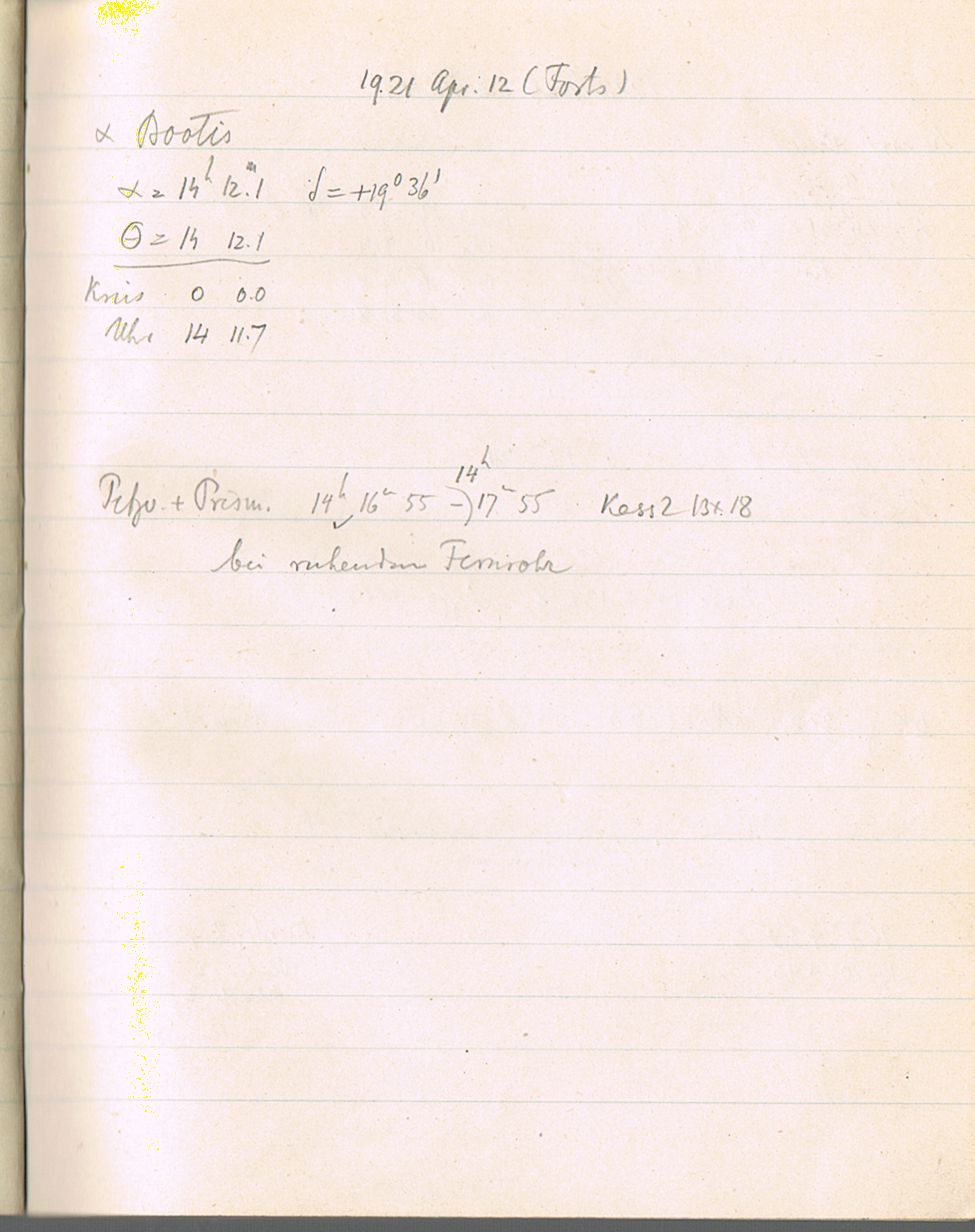 1921 Apr. 12 (Forts)
α Bootis
α = 14ʰ 12.ᵐ1 δ = +19° 36'
Θ = 14 12.1
Kreis 0 0.0
Uhr 14 11.7
14ʰ
Petzv. + Prism. 14ʰ 16ᵐ 55 –) 17ᵐ 55 Kass 2 18
bei ruhendem Fernrohr